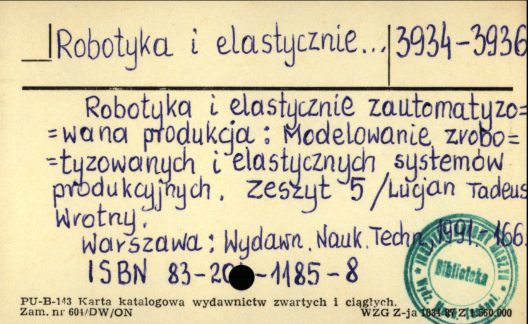 Robotyka i elastycznie... 3934-3936
Robotyka i elastycznie zautomatyzo=
=wana produkcja : Modelowanie zrobo=
=tyzowanych i elastycznych systemów
produkcyjnych. Zeszyt 5 / Lucjan Tadeusz
Wrotny.
Warszawa : Wydawn. Nauk. Techn. 1991. - 166
ISBN 83-20 -1185-8
Biblioteka
PU-B-143 Karta katalogowa wydawnictw zwartych i ciągłych.
Zam. nr 604/DW/ON WZG Z-ja 1034-87 Z 1.560.000